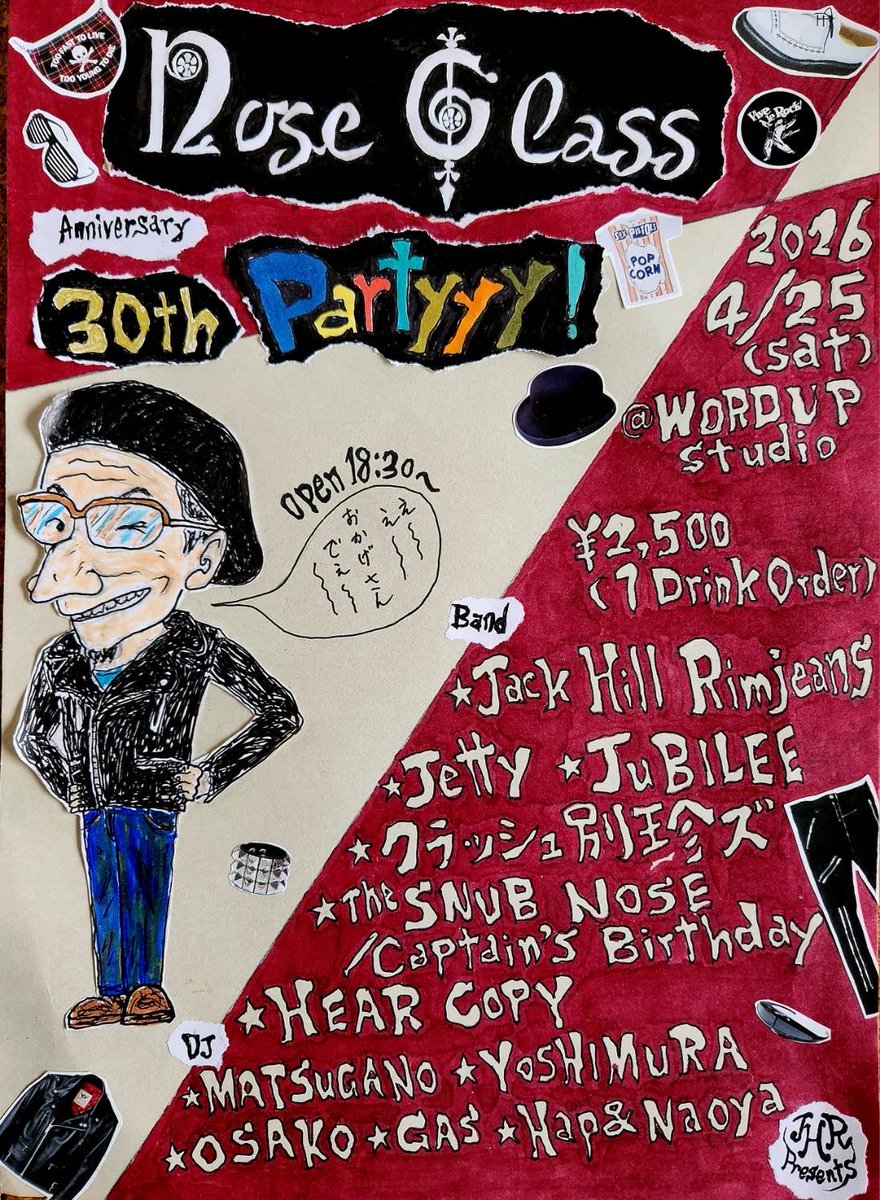 TOO FAST TO LIVE
TOO YOUNG TO DIE
Nose Glass
Vive Le Rock!
Anniversary
30th Partyyy!
SEX PISTOLS
POP
CORN
2026
4/25
(sat)
@WORDUP
studio
open 18:30~
ええ〜〜
おかげさん
でぇ〜〜
¥2,500
(1 Drink Order)
Band
★Jack Hill Rimjeans
★Jetty ★JuBILEE
★クラッシュ別珍ズ
★The SNUB NOSE
/Captain's Birthday
★HEAR COPY
DJ
★MATSUGANO ★YOSHIMURA
★OSAKO ★GAS ★Hap&Naoya
JHR
Presents